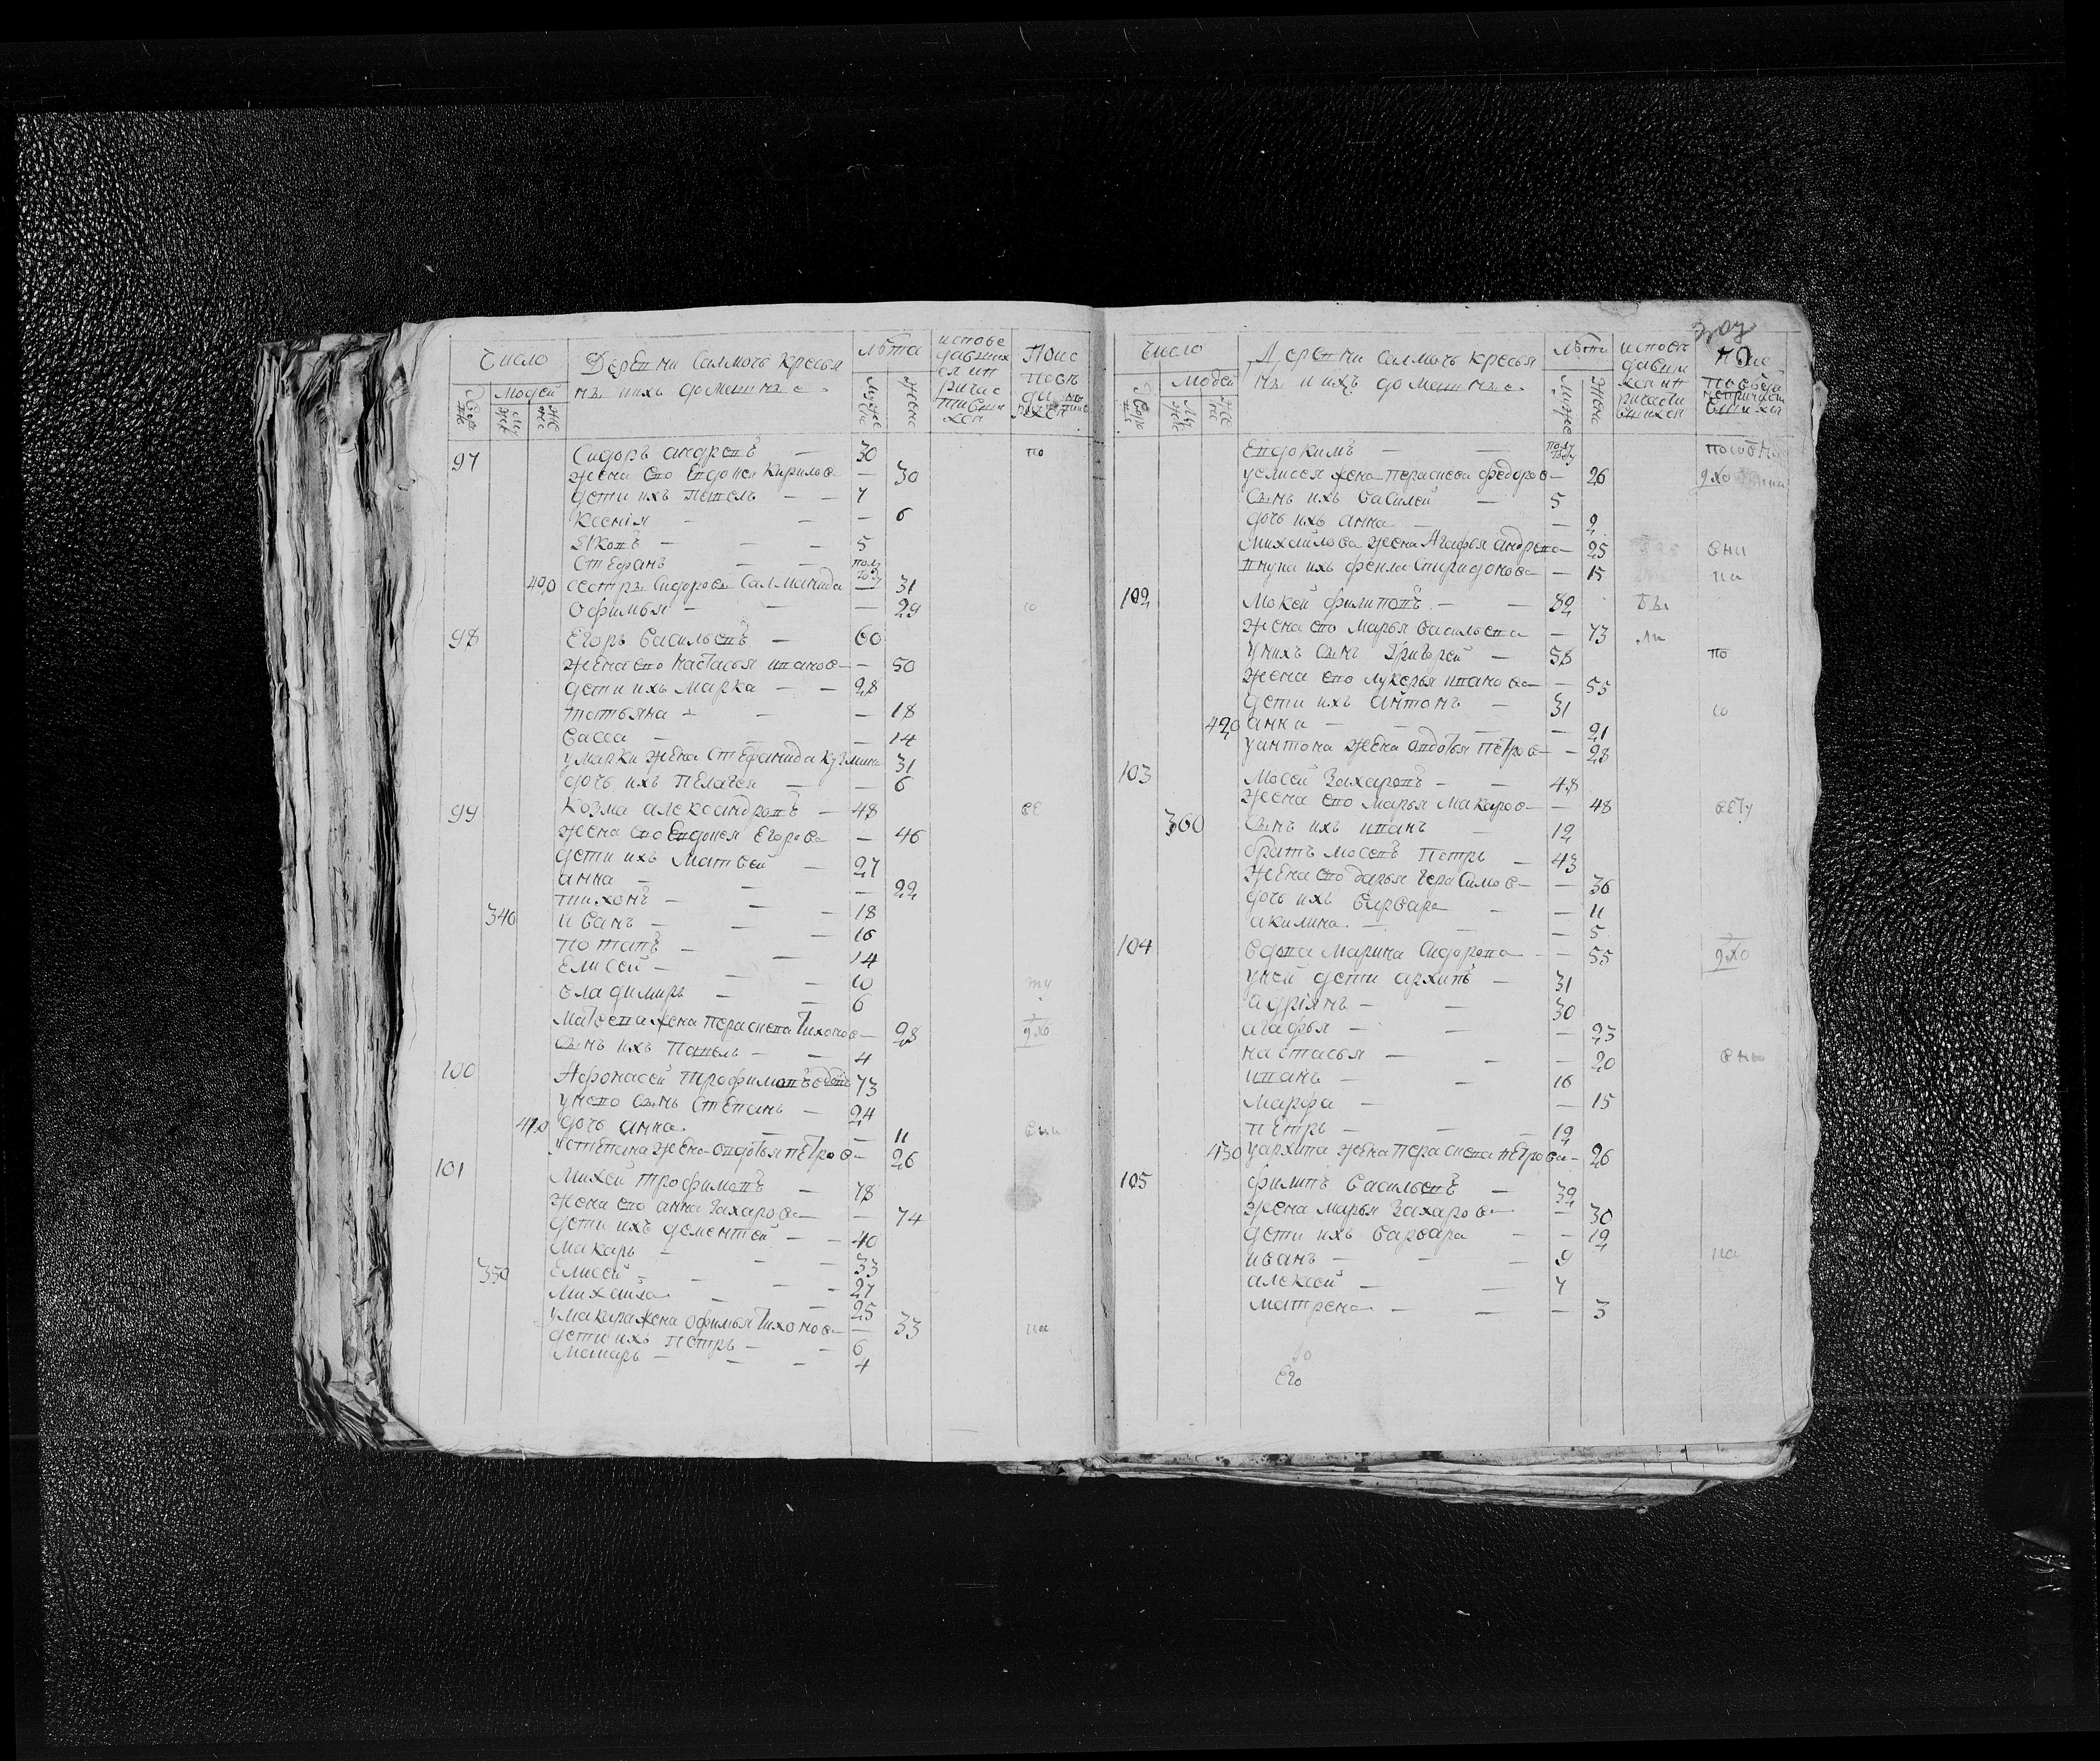 Число
Деревни Салмачь кресья
нъ и ихъ домашнъе
лѣта
исповедавших
Людей
97 Сидоръ андреевъ — 30
жена ево Евдокея Кирилова — 30
дети ихъ Павелъ — — 7
Ксенія — — — 6
Яковъ — — 5
Стефанъ — — полугоду
400 сестры Сидоровы Саламанида — 31
Офимья — — — 29
98 Егоръ васильевъ — 60
жена ево настасья иванова — — 50
дети ихъ марка — — 28
татьяна — — — 18
васса — — — 14
у марки жена Стефанида кузмина 31
дочь ихъ пелагея — — 6
99 Козма александровъ — 48
жена ево Евдокея Егорова — 46
дети ихъ Матвей — 27
анна — — — 22
тихонъ — — — 18
340 иванъ — — — 16
потапъ — — 14
Елисей — — 10
владимиръ — — 6
Матвева жена Пераскева Тихонова — 28
сынъ ихъ Павелъ — — 4
100 Афонасей Трофимовъ вдовъ 73
у нево сынъ Степанъ — 24
410 дочь анна. — — 11
у степана жена овдотья петрова — 26
101 Михей трофимовъ — 78
жена ево анна захарова — — 74
дети ихъ дементей — — 40
макаръ — — — 33
350 Елисей — — — 27
михаила — — 25
у макара жена офимья Тихонова — 33
дети ихъ петръ — — 6
— — 4
Число
Деревни салмачь кресья
нъ и ихъ домашнъе
лѣта
Людей
Евдокимъ — — полугоду
у елисея жена пераскева федорова — 26
сынъ ихъ василей — 5
дочь ихъ анна — — 2
михайлова жена Агафья андреева — 25
внука ихъ фекла спиридонова — 15
102 Мокей филиповъ — — 82
жена ево марья васильева — 73
у нихъ сынъ григорей — 58
жена ево лукерья иванова — 55
дети ихъ антонъ — 31
420 анна — — — 21
у антона жена овдотья петрова — — 28
103 Мосей Захаровъ — — 48
жена ево марья макарова — — 48
360 сынъ ихъ иванъ — 12
братъ мосеевъ петръ — 43
жена ево дарья герасимова — — 36
дочь ихъ варвара — — 11
акилина. — — — 5
104 вдова марина сидорова — — 55
у ней дети архипъ — 31
адріянъ — — 30
агафья — — — 23
настасья — — — 20
иванъ — — 16
марфа — — 15
петръ — — — 12
430 у архипа жена пераскева петрова — 26
105 филипъ васильевъ — 32
жена марья захарова — — 30
дети ихъ варвара — — 12
иванъ — — — 9
алексей — — 7
матрена — — — 3
Его